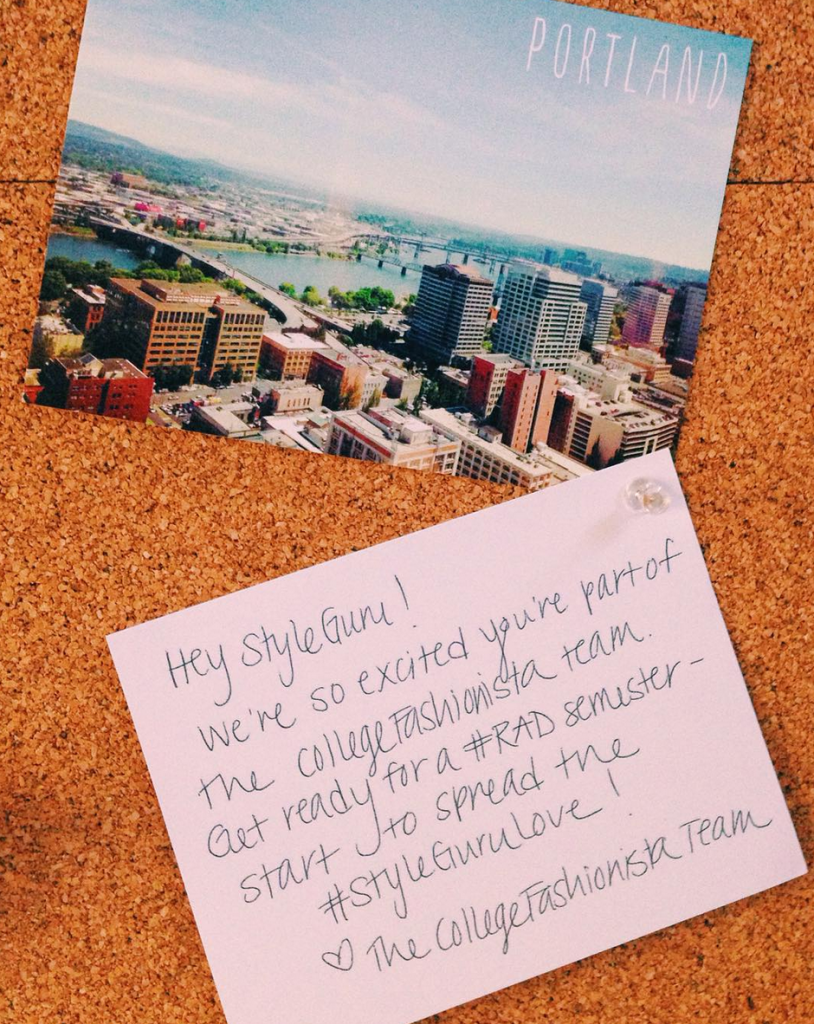 PORTLAND
Hey StyleGuru!
We're so excited you're part of
the CollegeFashionista team.
Get ready for a #RAD semester-
start to spread the
#StyleGuruLove!
♡ The CollegeFashionista Team